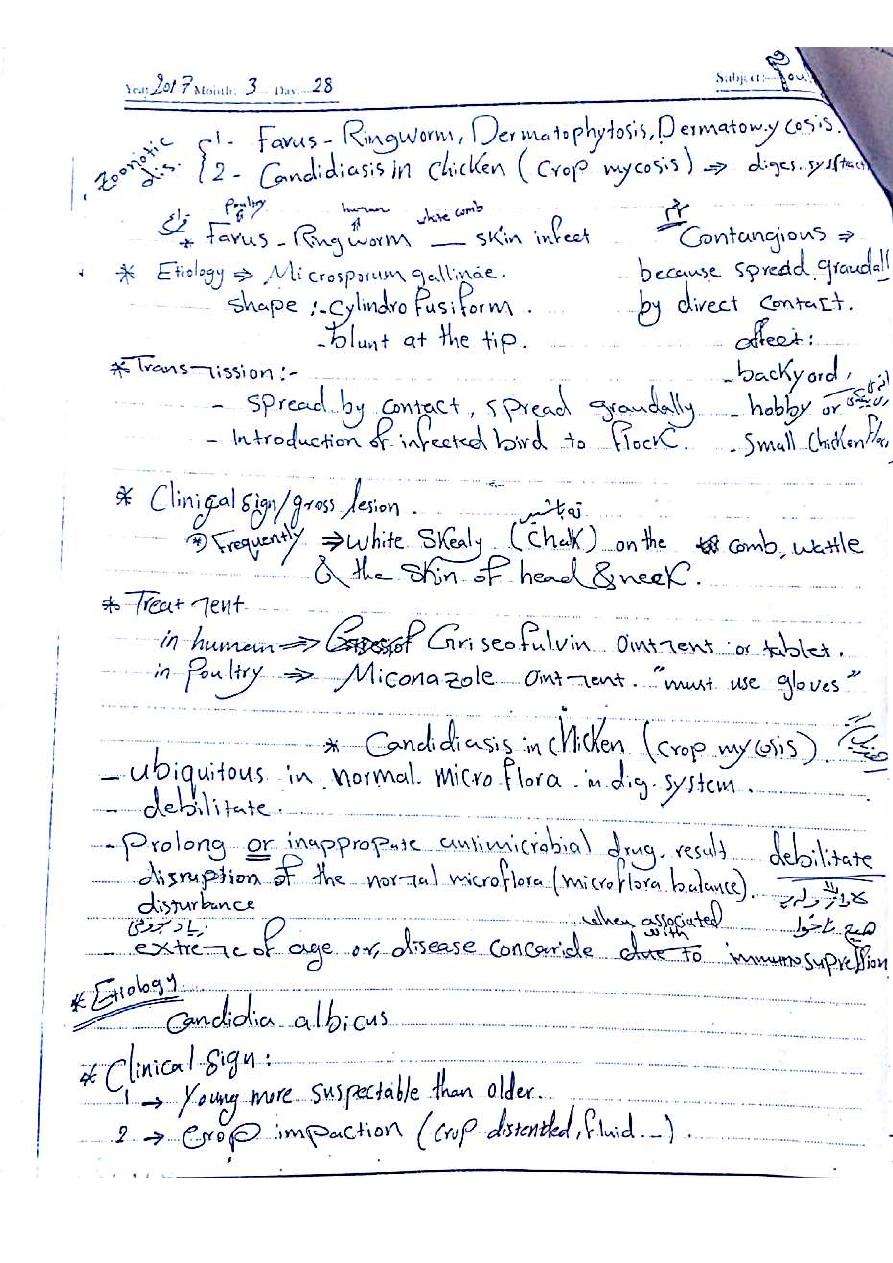 Year 2017 Month: 3 Day: 28 Subject:- Pou
Zoonotic dis.
1- Favus - Ringworm, Dermatophytosis, Dermatomycosis.
2- Candidiasis in chicken (Crop mycosis) ⇒ diges. sys
Poultry human white comb
* Favus - Ringworm — skin infect
Contangious ⇒
because spredd graudall
by direct contact.
affect:
- backyord,
- hobby or
- Small chicken
* Etiology ⇒ Microsporum gallinae.
shape :- cylindro fusiform.
- blunt at the tip.
* Transmission:-
- spread by contact, spread graudally
- Introduction of infected bird to flock.
* Clinical sign/gross lesion.
تەباشیر
* Frequently ⇒ white skealy (chalk) on the comb, wattle
& the skin of head & neek.
* Treatment
in human ⇒ Griseofulvin ointment or tablet.
in Poultry ⇒ Miconazole ointment. "must use gloves"
* Candidiasis in chicken (crop mycosis)
- ubiquitous in normal microflora in dig. system.
- debilitate.
- prolong or inappropate antimicrobial drug. result debilitate
disruption of the normal microflora (microflora balance).
disturbance
when associated
with
- extreme of age or, disease concaride due to immunosupression
* Etiology
Candidia albicus
* Clinical sign:
1 → Young more suspectable than older.
2 → crop impaction (crop distended, fluid...).